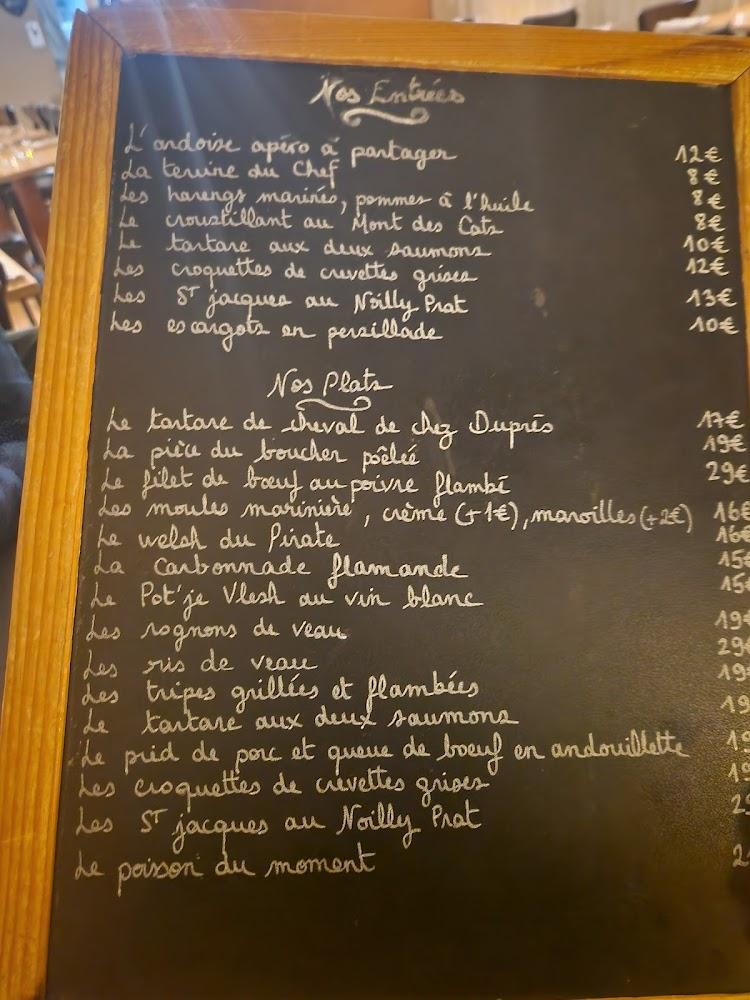 Nos Entrées
L'ardoise apéro à partager 12€
La terrine du Chef 8€
Les harengs marinés, pommes à l'huile 8€
Le croustillant au Mont des Cats 8€
Le tartare aux deux saumons 10€
Les croquettes de crevettes grises 12€
Les St jacques au Noilly Prat 13€
Les escargots en persillade 10€
Nos Plats
Le tartare de cheval de chez Duprés 17€
La pièce du boucher poêlée 19€
Le filet de bœuf au poivre flambé 29€
Les moules marinière, crème (+1€), maroilles (+2€) 16€
Le welsh du Pirate 16€
La Carbonnade flamande 15€
Le Pot'je Vlesh au vin blanc 15€
Les rognons de veau 19€
Les ris de veau 29€
Les tripes grillées et flambées 19
Le tartare aux deux saumons 19
Le pied de porc et queue de bœuf en andouillette 19
Les croquettes de crevettes grises 19
Les St jacques au Noilly Prat
Le poisson du moment